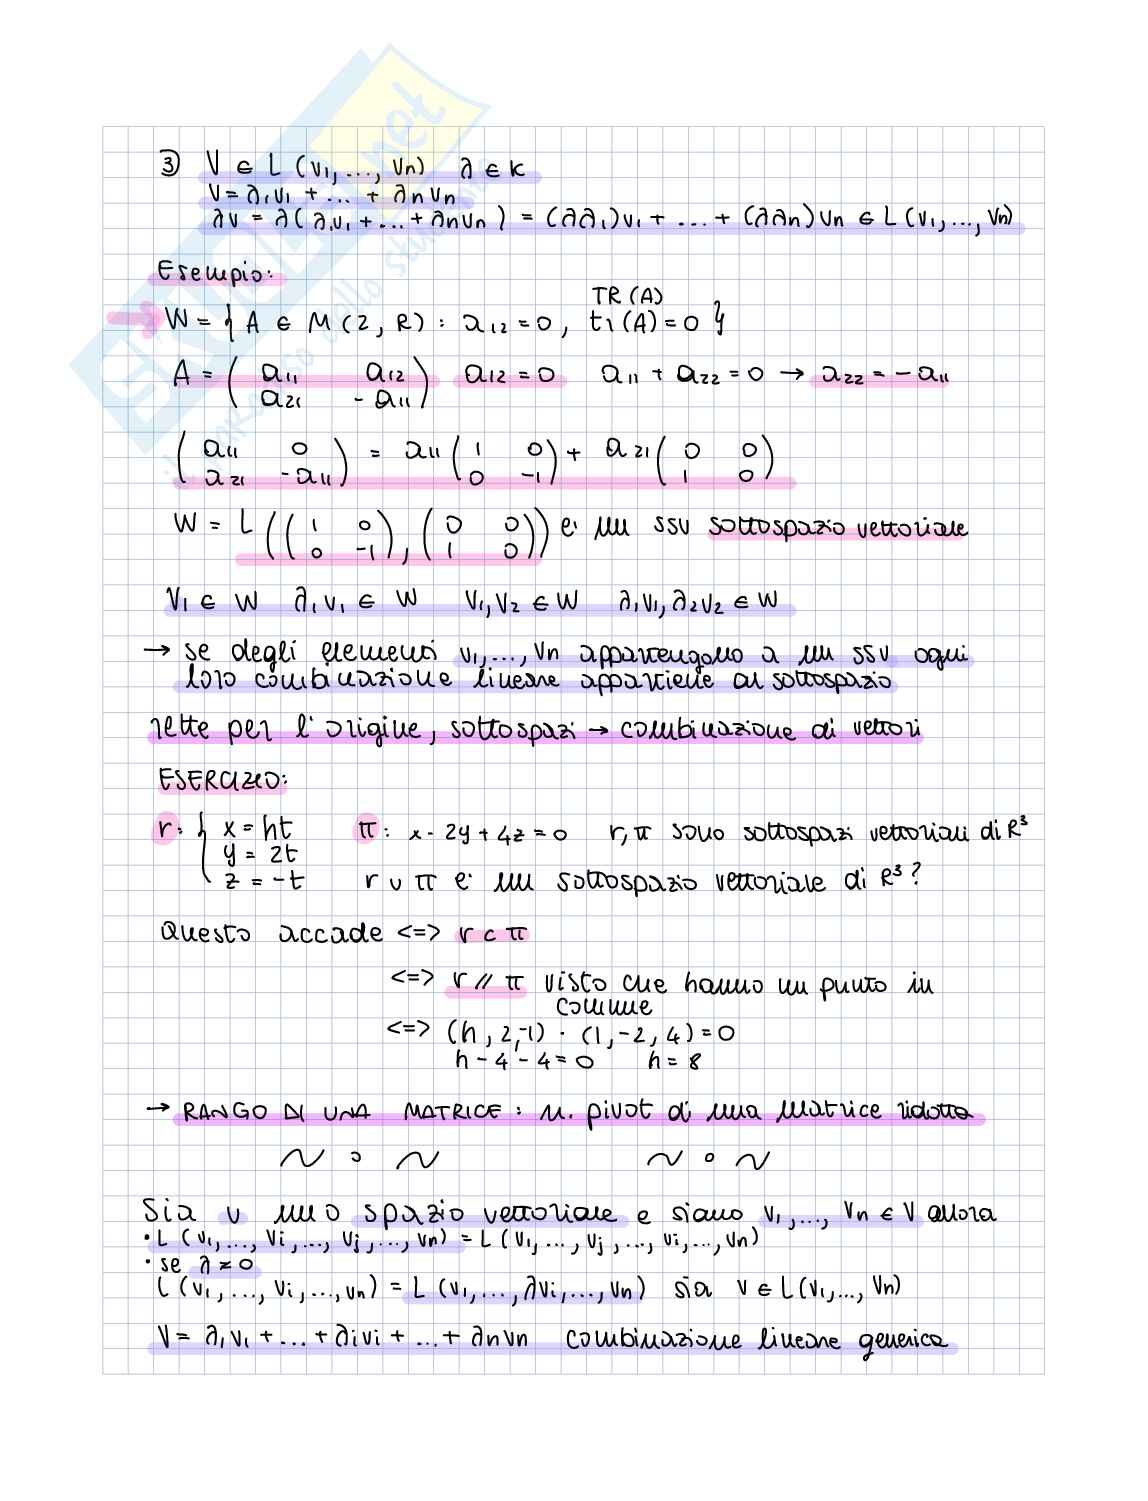 3) V ∈ L (v1, ..., vn) λ ∈ K
V = λ1v1 + ... + λnvn
λv = λ(λ1v1 + ... + λnvn) = (λλ1)v1 + ... + (λλn)vn ∈ L (v1, ..., vn)
Esempio:
TR (A)
W = { A ∈ M (2, R) : a12 = 0, t1(A) = 0 }
A = ( a11 a12 ) a12 = 0 a11 + a22 = 0 → a22 = - a11
( a21 - a11 )
( a11 0 ) = a11 ( 1 0 ) + a21 ( 0 0 )
( a21 - a11 ) ( 0 -1 ) ( 1 0 )
W = L (( 1 0 ), ( 0 0 )) e' un ssv sottospazio vettoriale
(( 0 -1 ), ( 1 0 ))
V1 ∈ W λ1v1 ∈ W V1, V2 ∈ W λ1V1, λ2V2 ∈ W
→ se degli elementi v1, ..., vn appartengono a un ssv ogni
loro combinazione lineare appartiene al sottospazio
rette per l'origine, sottospazi → combinazione di vettori
ESERCIZIO:
r: { x = ht π: x - 2y + 4z = 0 r, π sono sottospazi vettoriali di R³
y = 2t
z = -t r ∪ π e' un sottospazio vettoriale di R³?
Questo accade <=> r ⊂ π
<=> r // π visto che hanno un punto in
comune
<=> (h, 2, -1) · (1, -2, 4) = 0
h - 4 - 4 = 0 h = 8
→ RANGO DI UNA MATRICE : n. pivot di una matrice ridotta
~ ° ~ ~ ° ~
Sia v uno spazio vettoriale e siano v1, ..., vn ∈ V allora
· L (v1, ..., vi, ..., vj, ..., vn) = L (v1, ..., vj, ..., vi, ..., vn)
· se λ ≠ 0
L (v1, ..., vi, ..., vn) = L (v1, ..., λvi, ..., vn) sia v ∈ L(v1, ..., vn)
V = λ1v1 + ... + λivi + ... + λnvn combinazione lineare generica